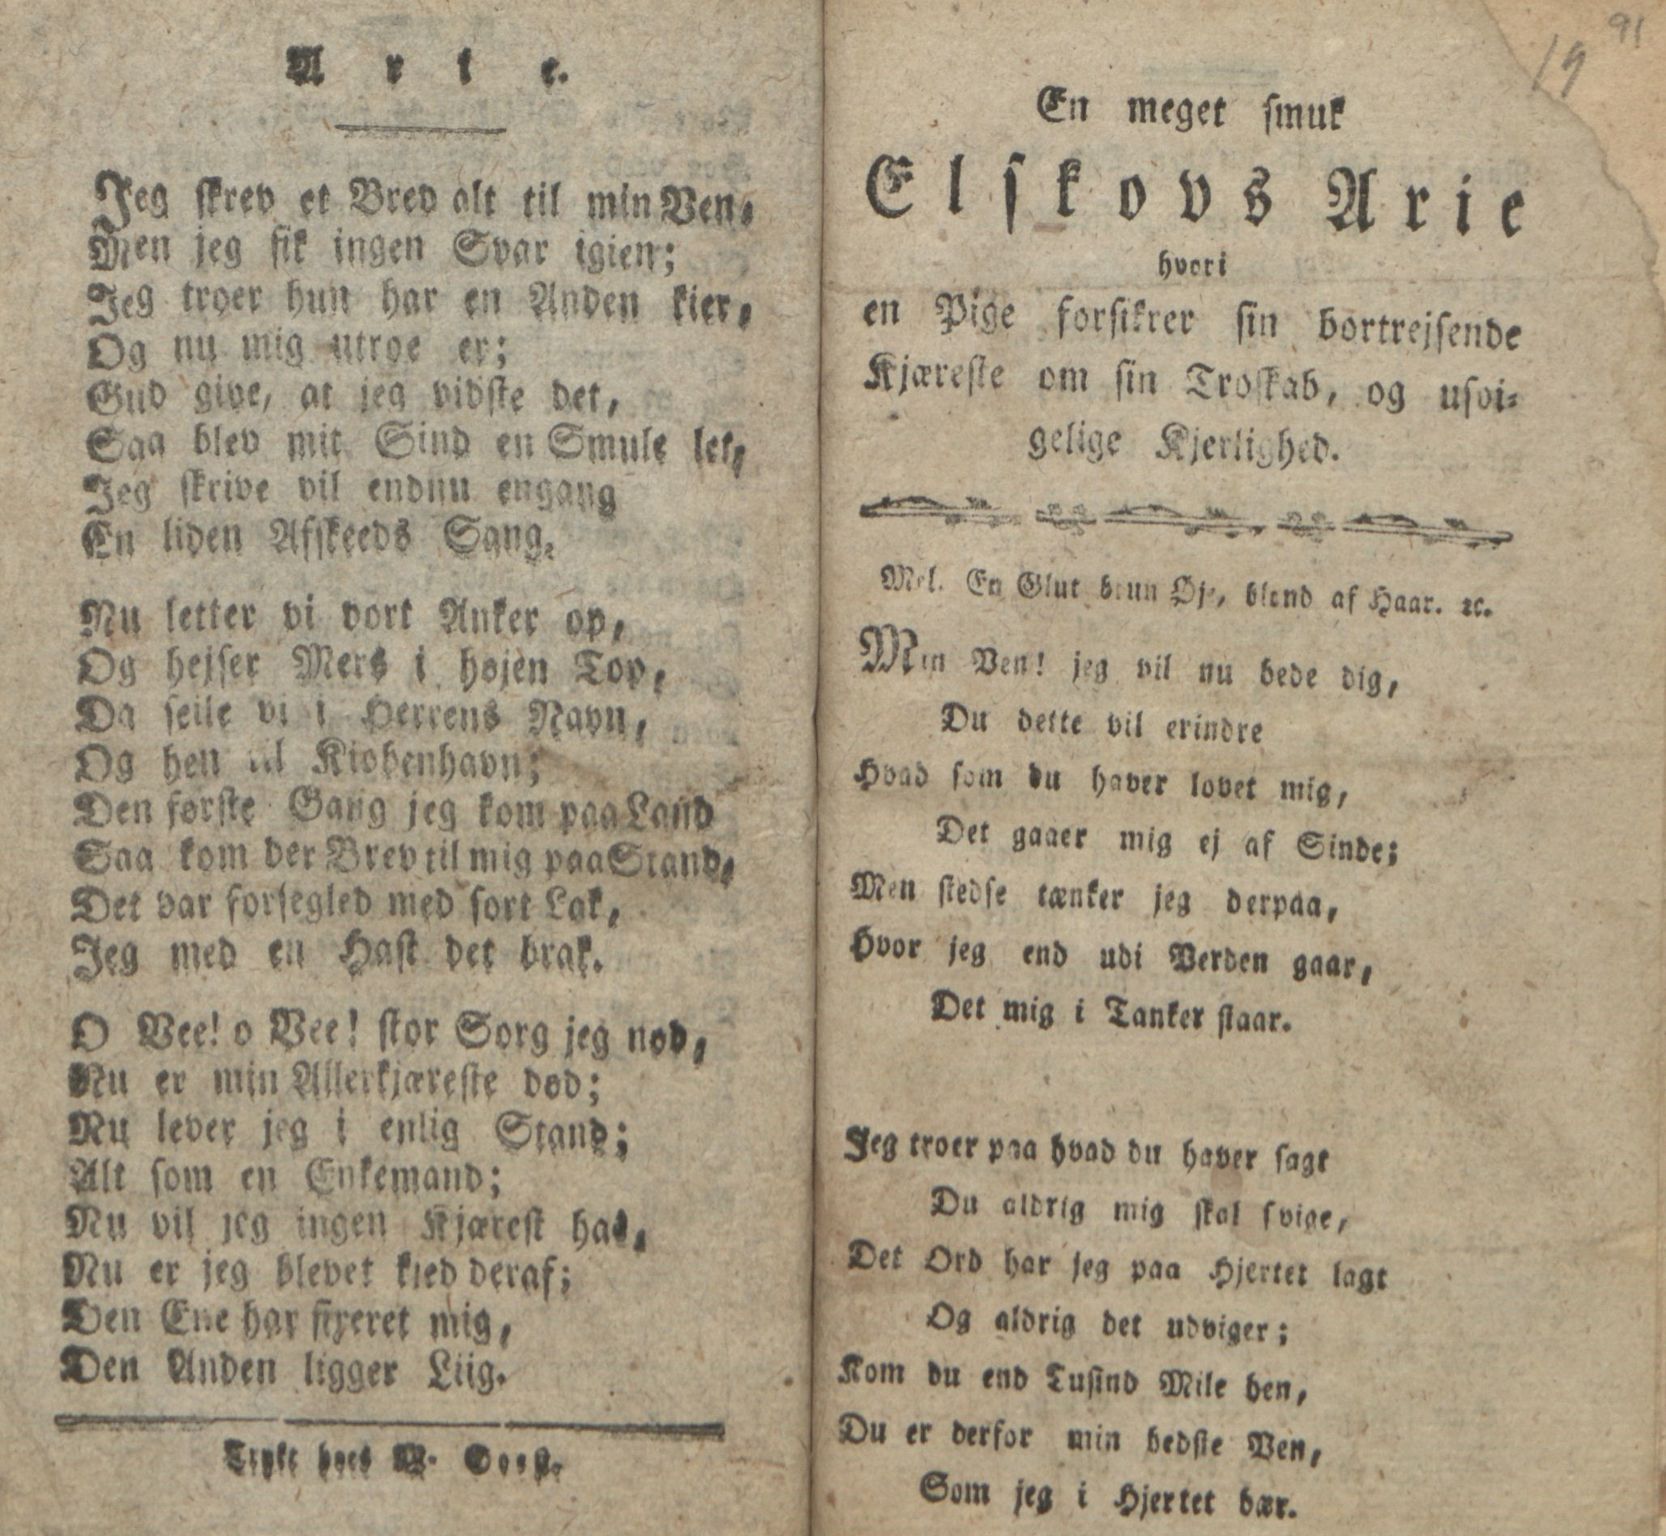 Arie.
Jeg skrev et Brev alt til min Ven,
Men jeg fik ingen Svar igien;
Jeg troer hun har en Anden kier,
Og nu mig utroe er;
Gud give, at jeg vidste det,
Saa blev mit Sind en Smule let,
Jeg skrive vil endnu engang
En liden Afskeeds Sang.
Nu letter vi vort Anker op,
Og hejser Mers i højen Top,
Da seile vi i Herrens Navn,
Og hen til Kiøbenhavn;
Den første Gang jeg kom paa Land
Saa kom der Brev til mig paa Stand,
Det var forsegled med sort Lak,
Jeg med en Hast det brak.
O Vee! o Vee! stor Sorg jeg nød,
Nu er min Allerkjæreste død;
Nu lever jeg i enlig Stand;
Alt som en Enkemand;
Nu vil jeg ingen Kjærest ha',
Nu er jeg blevet kied deraf;
Den Ene har fixeret mig,
Den Anden ligger Liig.
Trykt hos
19
91
En meget smuk
Elskovs Arie
hvori
en Pige forsikrer sin bortrejsende
Kjæreste om sin Troskab, og usvi-
gelige Kjerlighed.
Mel. En Glut brun Øje, blond af Haar. ꝛc.
Min Ven! jeg vil nu bede dig,
Du dette vil erindre
Hvad som du haver lovet mig,
Det gaaer mig ej af Sinde;
Men stedse tænker jeg derpaa,
Hvor jeg end udi Verden gaar,
Det mig i Tanker staar.
Jeg troer paa hvad du haver sagt
Du aldrig mig skal svige,
Det Ord har jeg paa Hjertet lagt
Og aldrig det udviger;
Kom du end Tusind Mile hen,
Du er derfor min bedste Ven,
Som jeg i Hjertet bær.